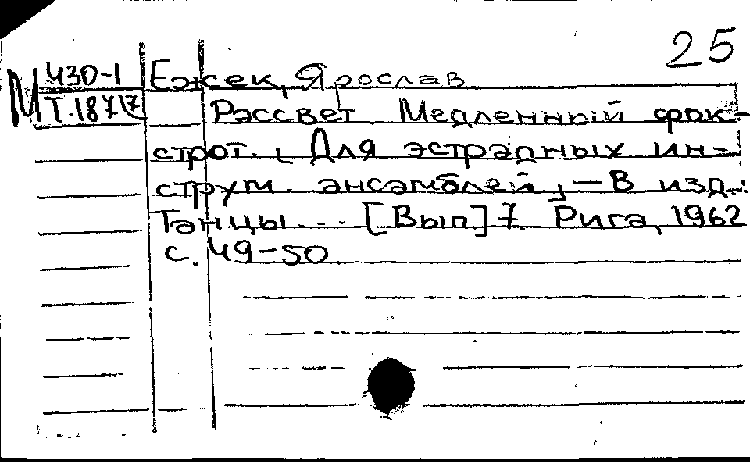 25
М Ч30-1 Ежек, Ярослав
Т.18717 Рассвет Медленный фок-
строт. [Для эстрадных ин-
струм. ансамблей]. — В изд.:
Танцы... [Вып] 7. Рига, 1962
с. 49-50